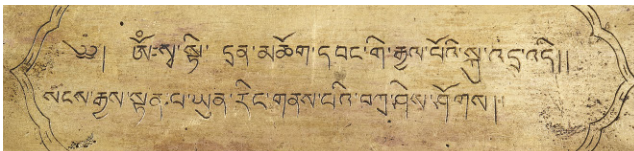 ༄༅། ཨོཾ་སྭ་སྟི་ དྲན་མཆོག་དབང་གི་རྒྱལ་པོའི་སྐུ་འདྲ་འདི།།
སངས་རྒྱས་སྟན་པ་ཡུན་རིང་གནས་པའི་བཀྲ་ཤིས་ཤོགས།